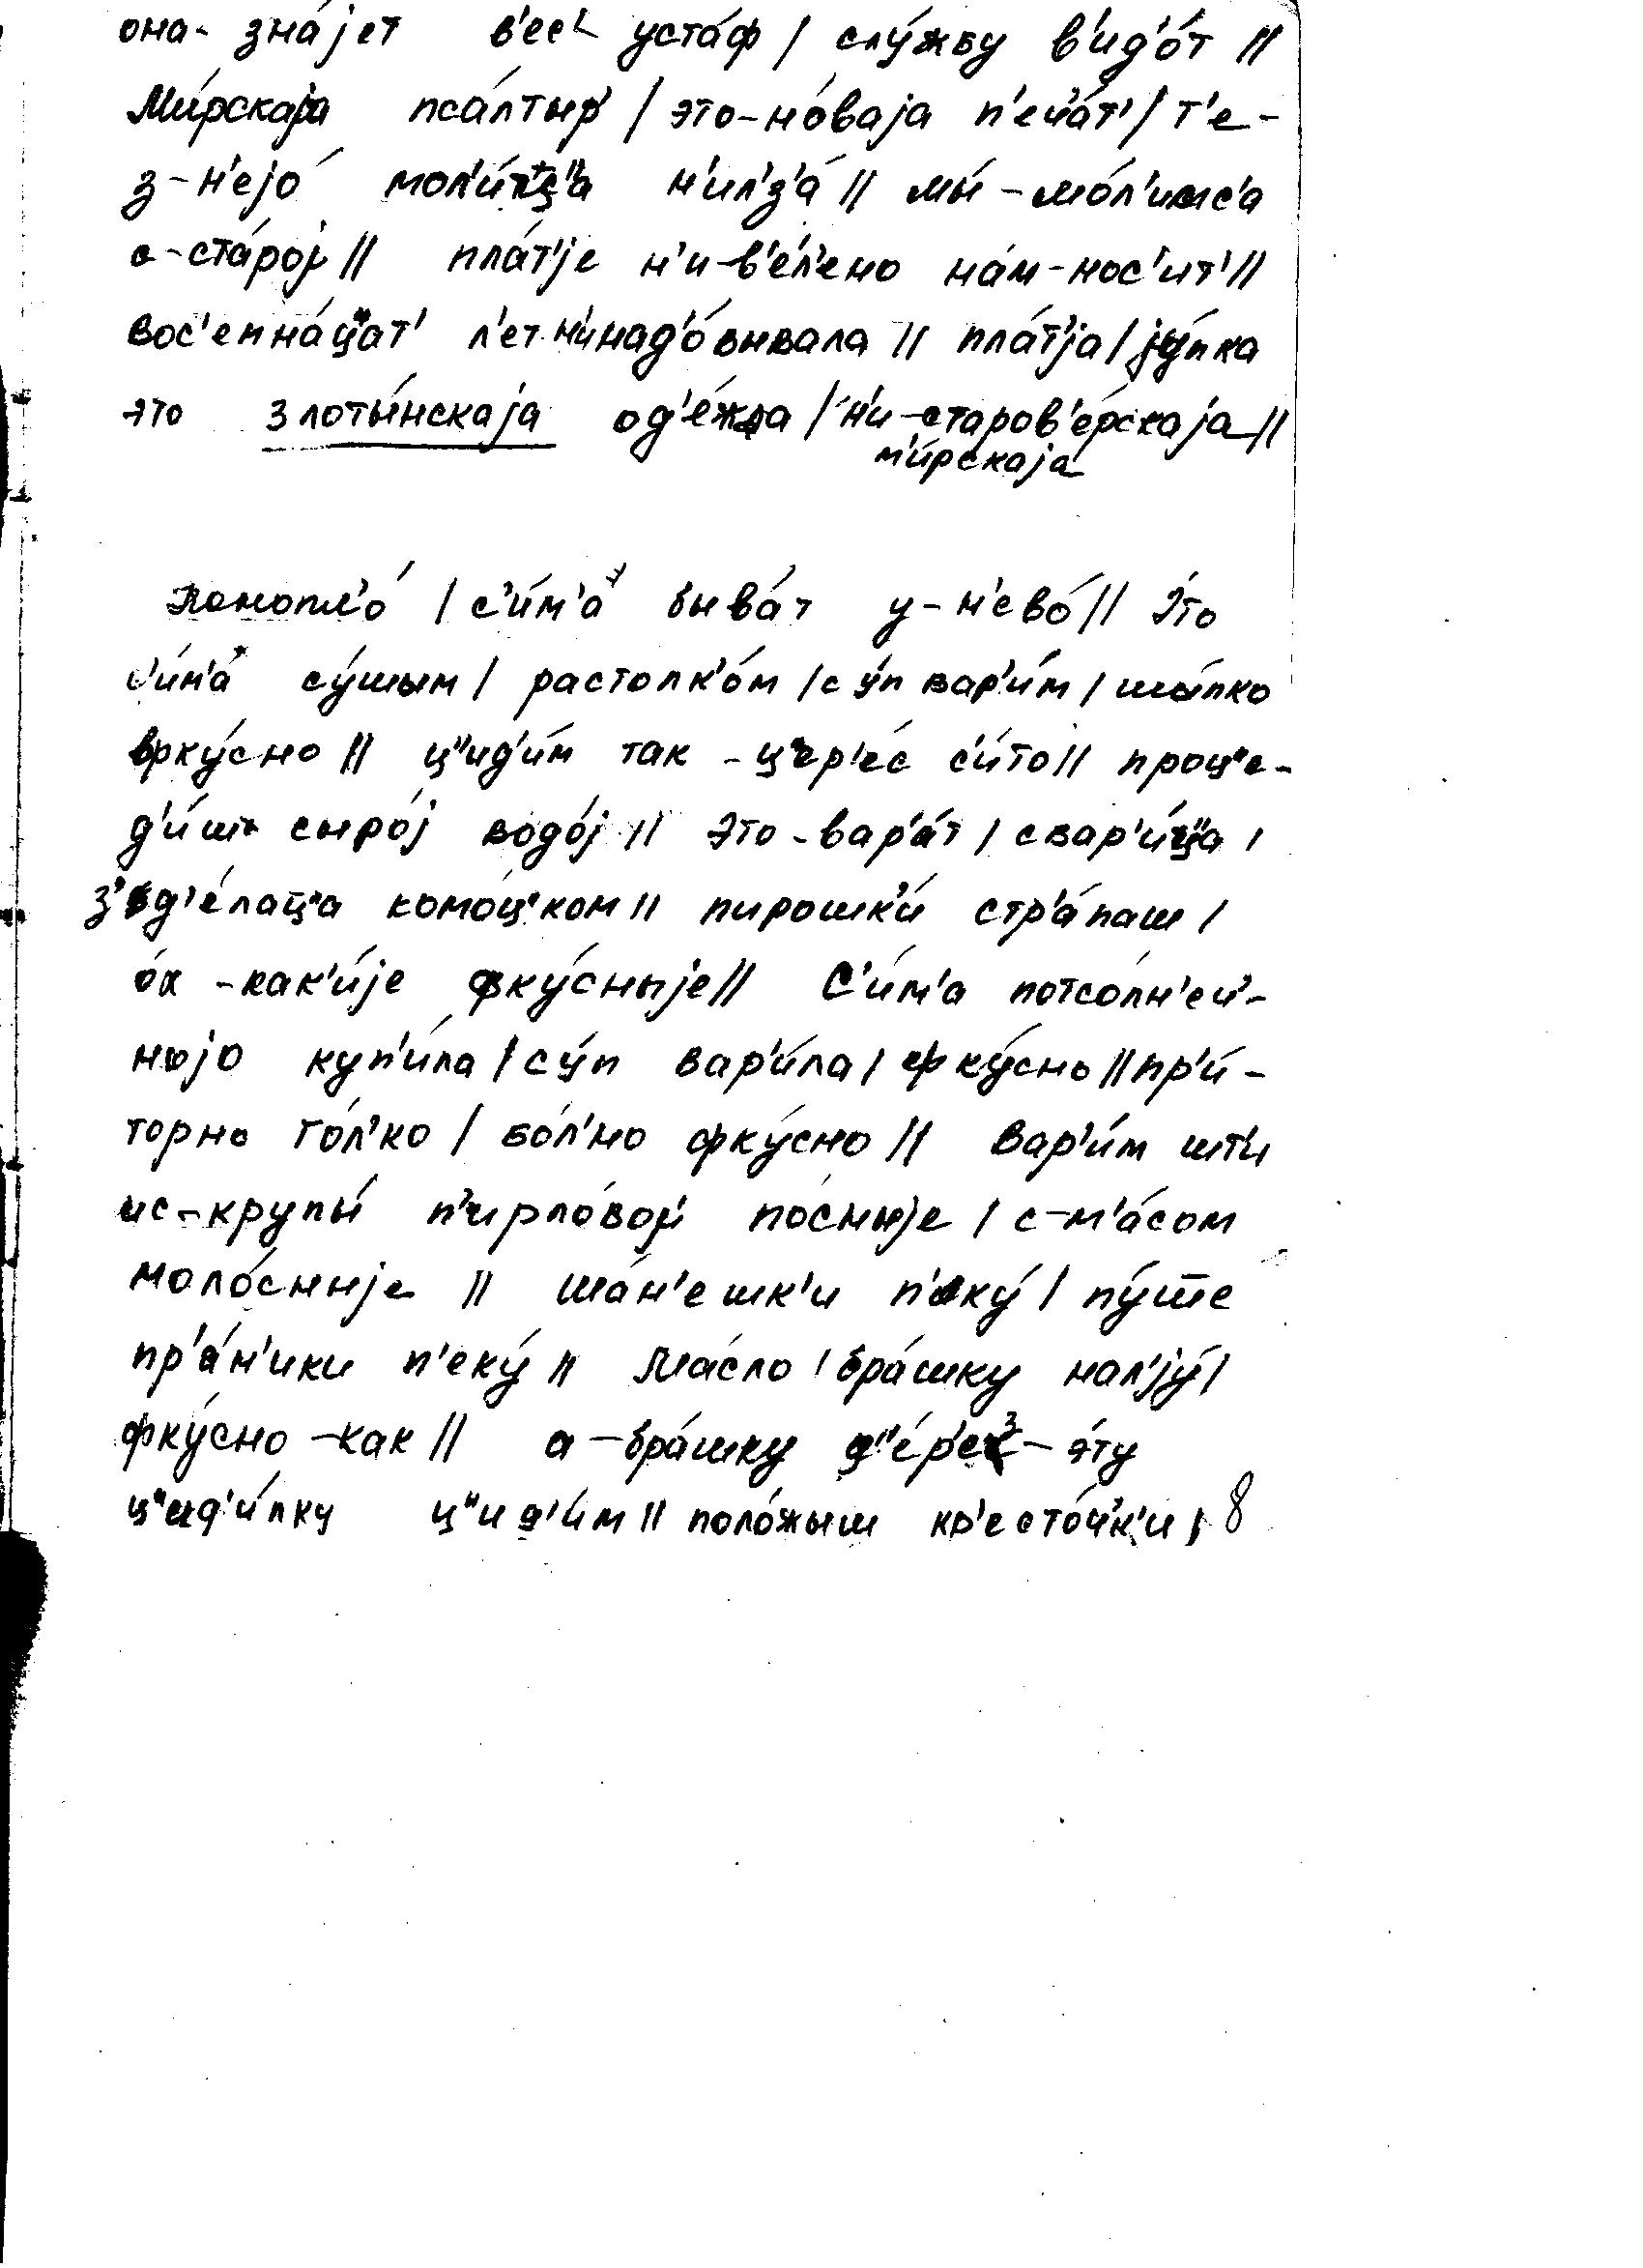 она- зна́јет в'ес' уста́ф / слу́жбу в'ид'о́т //
Ми́рскаја пса́лтыр' / это-но́ваја п'еч'а́т' / т'е-
з-н'ејо́ мол'и́ц"а н'ил'з'а́ // мы́-мо́л'имс'а
с-ста́рој // пла́т'је н'и-в'е́л'ено на́м-нос'ит' //
вос'емна́ц"ат' л'ет н'инад'о́вывала // пла́т'ја / јýпка
это злоты́нскаја од'е́жда / н'и-старов'е́рскаја //
м'и́рскаја
Конопл'о́ / с'и́м'а быва́т у-н'ево́ // Э́то
с'и́м'а су́шым / растолк'о́м / су́п вар'и́м / шы́пко
вку́сно // ц"ид'и́м так -ц"ер'е́с с'и́то // проц"е-
д'и́ш сыро́ј водо́ј // это-вар'а́т / свар'и́ц"а /
з'д'е́лац"а комо́ц"ком // пирошк'и́ стр'а́паш /
о́х -как'и́је фку́сныје // С'и́м'а потсо́лн'еч'-
ноjо куп'и́ла / су́п вар'и́ла / фку́сно // пр'и́-
торно то́л'ко / бо́л'но фку́сно // вар'и́м шт'и
ис-крупы́ п'ирло́вој по́сныје / с-м'а́сом
моло́сныје // ша́н'ешк'и п'еку́ / пу́ште
пр'а́н'ики п'еку́ // ма́сло / бра́шку нал'ју́ /
фку́сно -как // а -бра́шку ц"е́р'ез- э́ту
ц"ид'и́лку ц"ид'и́м // поло́жыш кр'есто́ч'к'и / 8